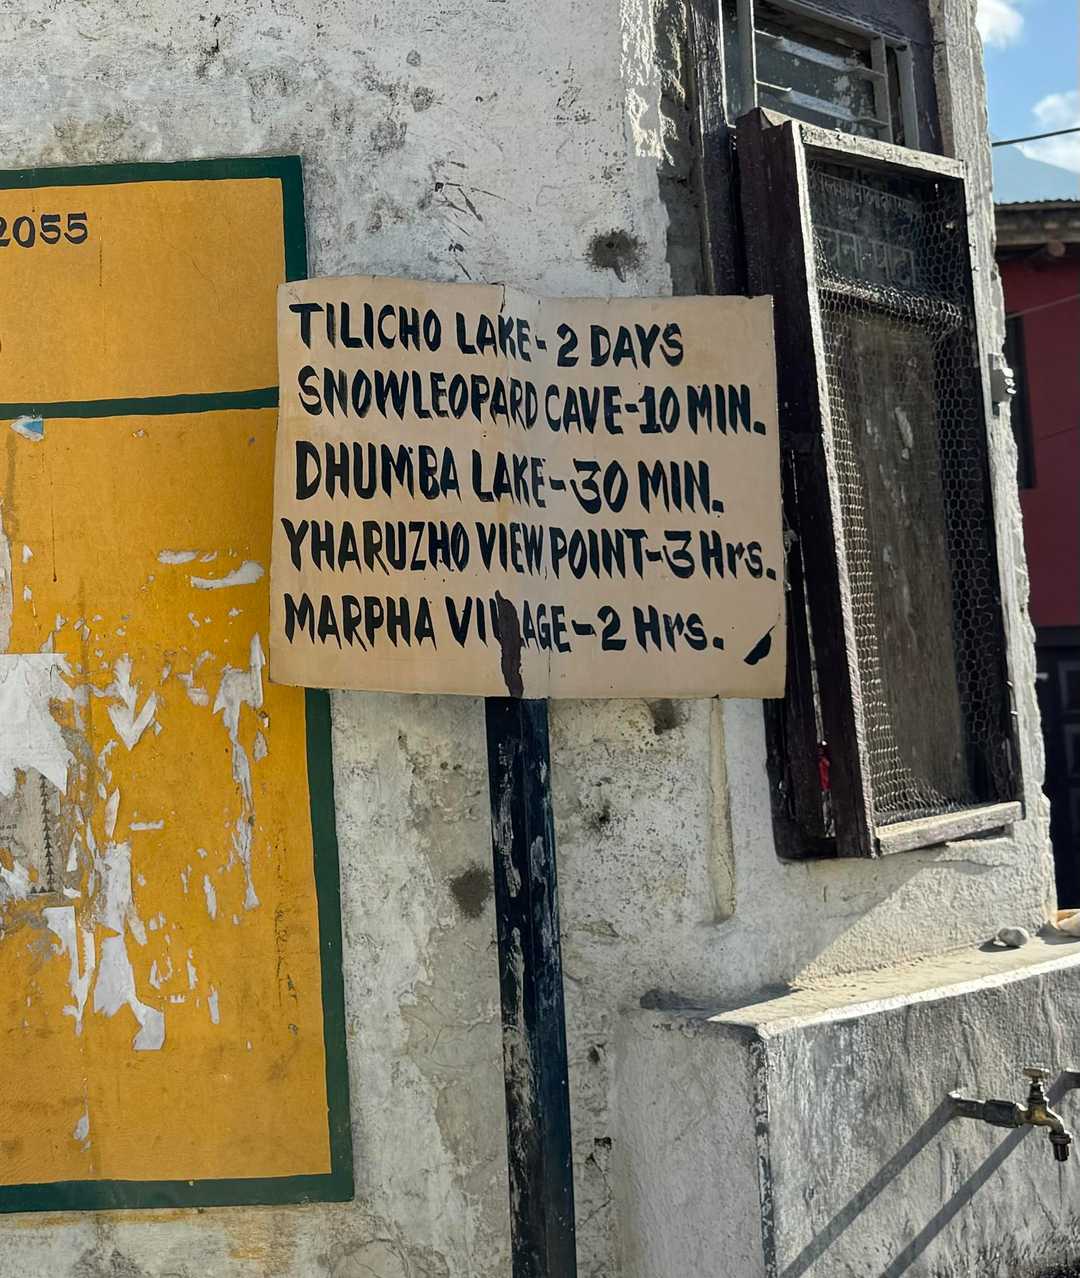 2055
TILICHO LAKE- 2 DAYS
SNOWLEOPARD CAVE-10 MIN.
DHUMBA LAKE-30 MIN.
YHARUZHO VIEW POINT-3 Hrs.
MARPHA VILLAGE-2 Hrs.